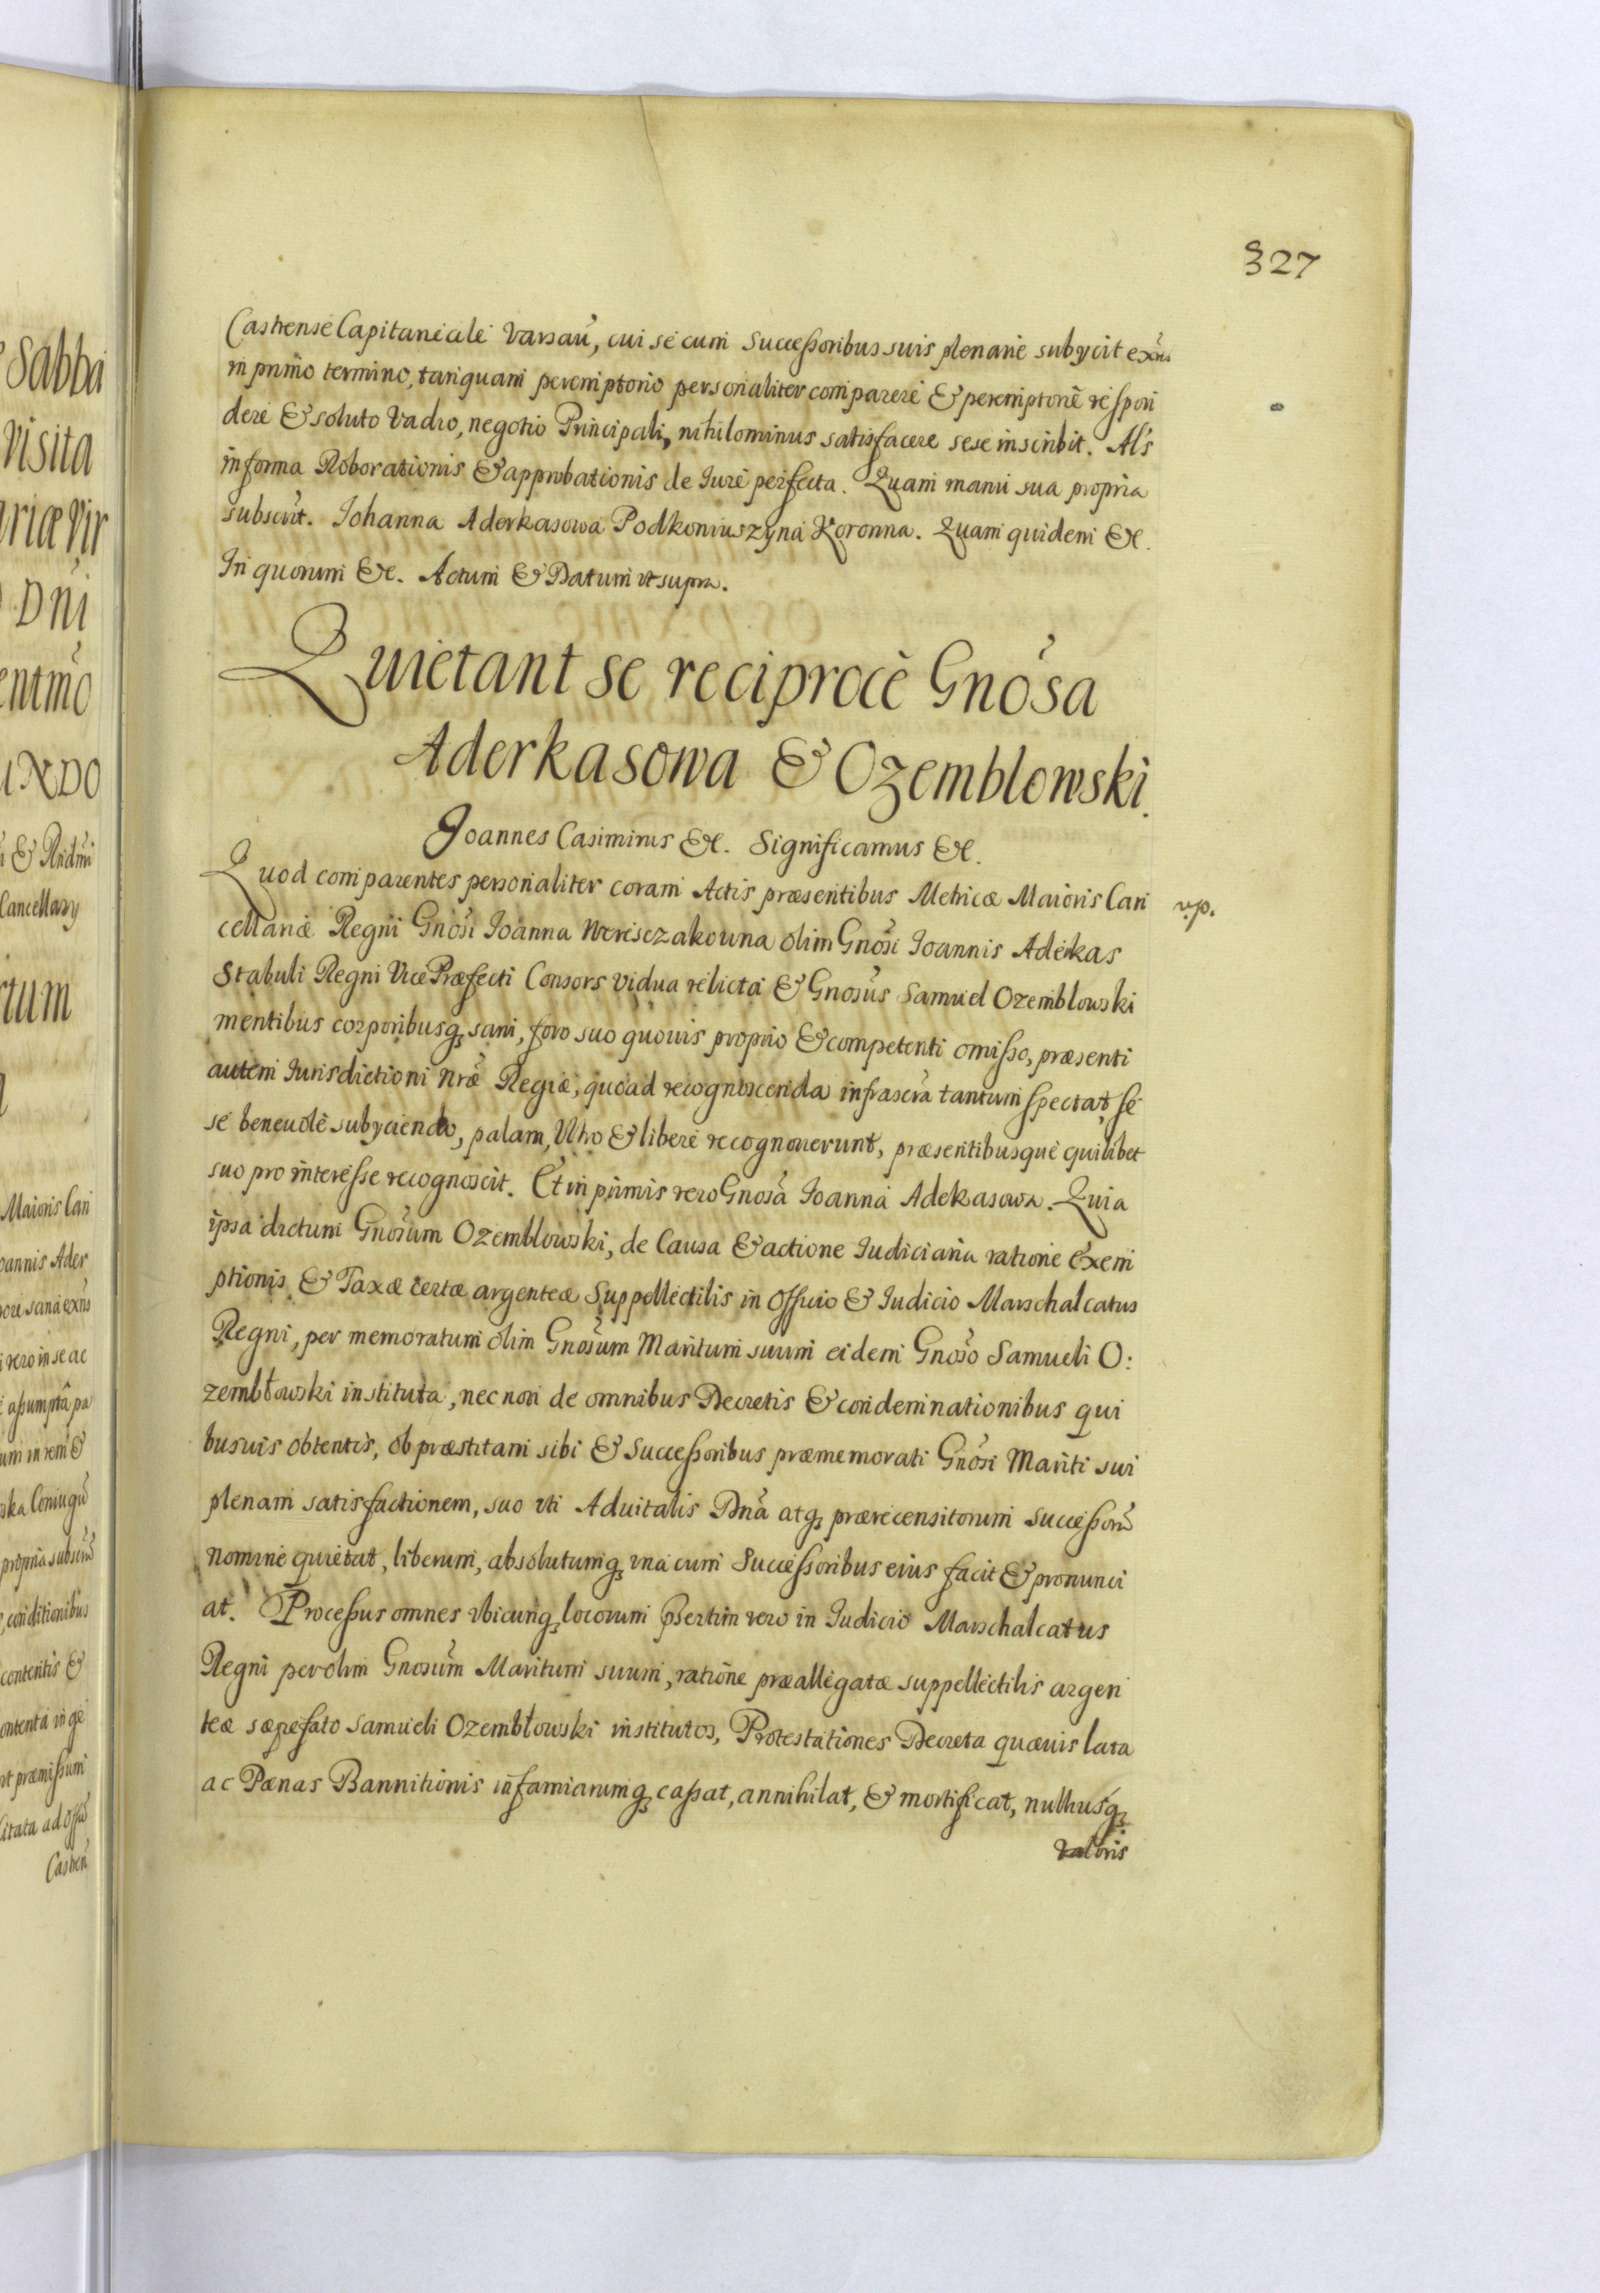 327
Castrense Capitaneale Varsaū, cui se cum Successoribus suis plenarie subycit exn̄s
in primo termino, tanquam peremptorio personaliter comparere & peremptorie respon
dere & soluto Vadio, negotio Principali, nihilominus satisfacere sese inscribit. Al's
in forma Roborationis & approbationis de Iure perfecta. Quam manu sua propria
subscrit. Johanna Aderkasowa Podkoniuszyna Koronna. Quam quidem &c.
In quorum &c. Actum & Datum vt supra.
Quietant se reciprocè Gnōsa
Aderkasowa & Ozemblowski.
Joannes Casimirus &c. Significamus &c.
Quod comparentes personaliter coram Actis præsentibus Metricæ Maioris Can
vp.
cellariæ Regni Gnōsi Ioanna Wereszczakouna olim Gnōsi Ioannis Aderkas
Stabuli Regni Vice Præfecti Consors vidua relicta & Gnosūs Samuel Ozemblowski
mentibus corporibusq₃ sani, foro suo quouis proprio & competenti omisso, præsenti
autem Iurisdictioni nr̄æ Regiæ, quoad recognoscenda infrascrā tantum spectat se
se beneuolè subyciendo, palam, Vltro & libere recognouerunt, præsentibusque quilibet
suo pro interesse recognoscit. Et in primis vero Gnosā Ioanna Adekasowa. Quia
ipsa dictum Gnosūm Ozemblowski, de Causa & actione Iudiciaria ratione Exem
ptionis & Taxæ certæ argenteæ Suppellectilis in Officio & Iudicio Marschalcatus
Regni, per memoratum olim Gnosūm Maritum suum eidem Gnosō Samueli O:
zembłowski instituta, nec non de omnibus Decretis & condemnationibus qui
busuis obtentis, ob præstitam sibi & Successoribus præmemorati Gnōsi Mariti sui
plenam satisfactionem, suo vti Aduitalis Dnā atq₃ prærecensitorum successorū
nomine quietat, liberum, absolutumq₃ vna cum Successoribus eius facit & pronunci
at. Processus omnes vbicunq₃ locorum p̄sertim vero in Iudicio Marschalcatus
Regni per olim Gnosūm Maritum suum, ratione præallegatæ suppellectilis argen
teæ sæpefato Samueli Ozembłowski institutos, Protestationes Decreta quæuis lata
ac Pænas Bannitionis infamiarumq₃ cassat, annihilat, & mortificat, nulliusq₃
valoris